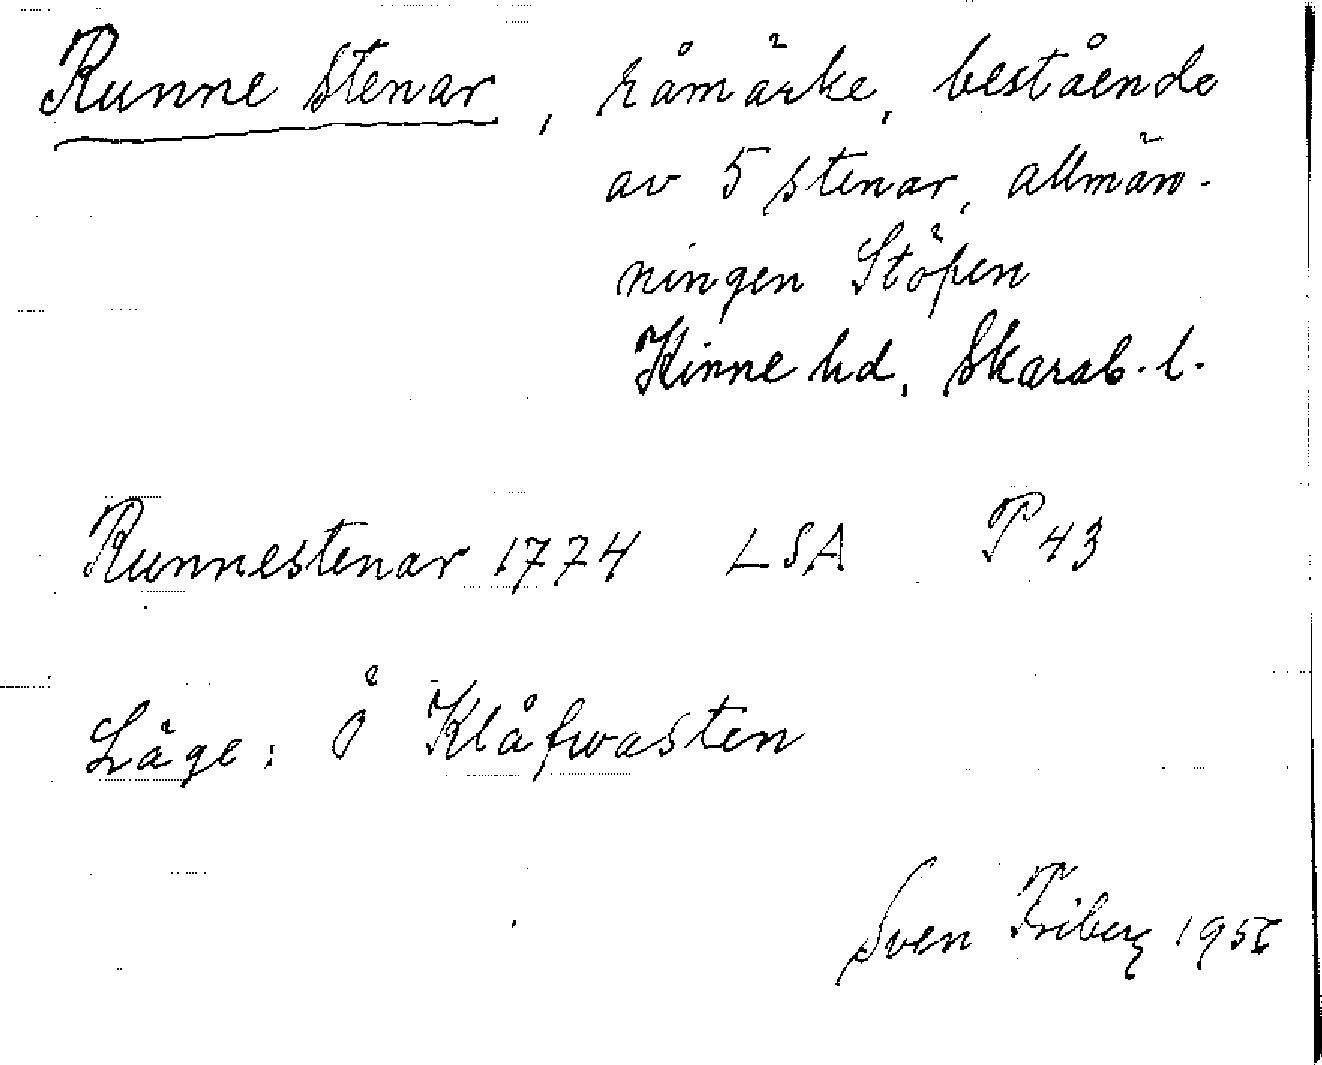 Runne stenar, råmärke, bestående
av 5 stenar, allmän-
ningen Stöpen
Kinne hd, Skarab. l.
Runnestenar 1774 LSA P 43
Läge: Ö Klåfwasten
Sven Friberg 1956